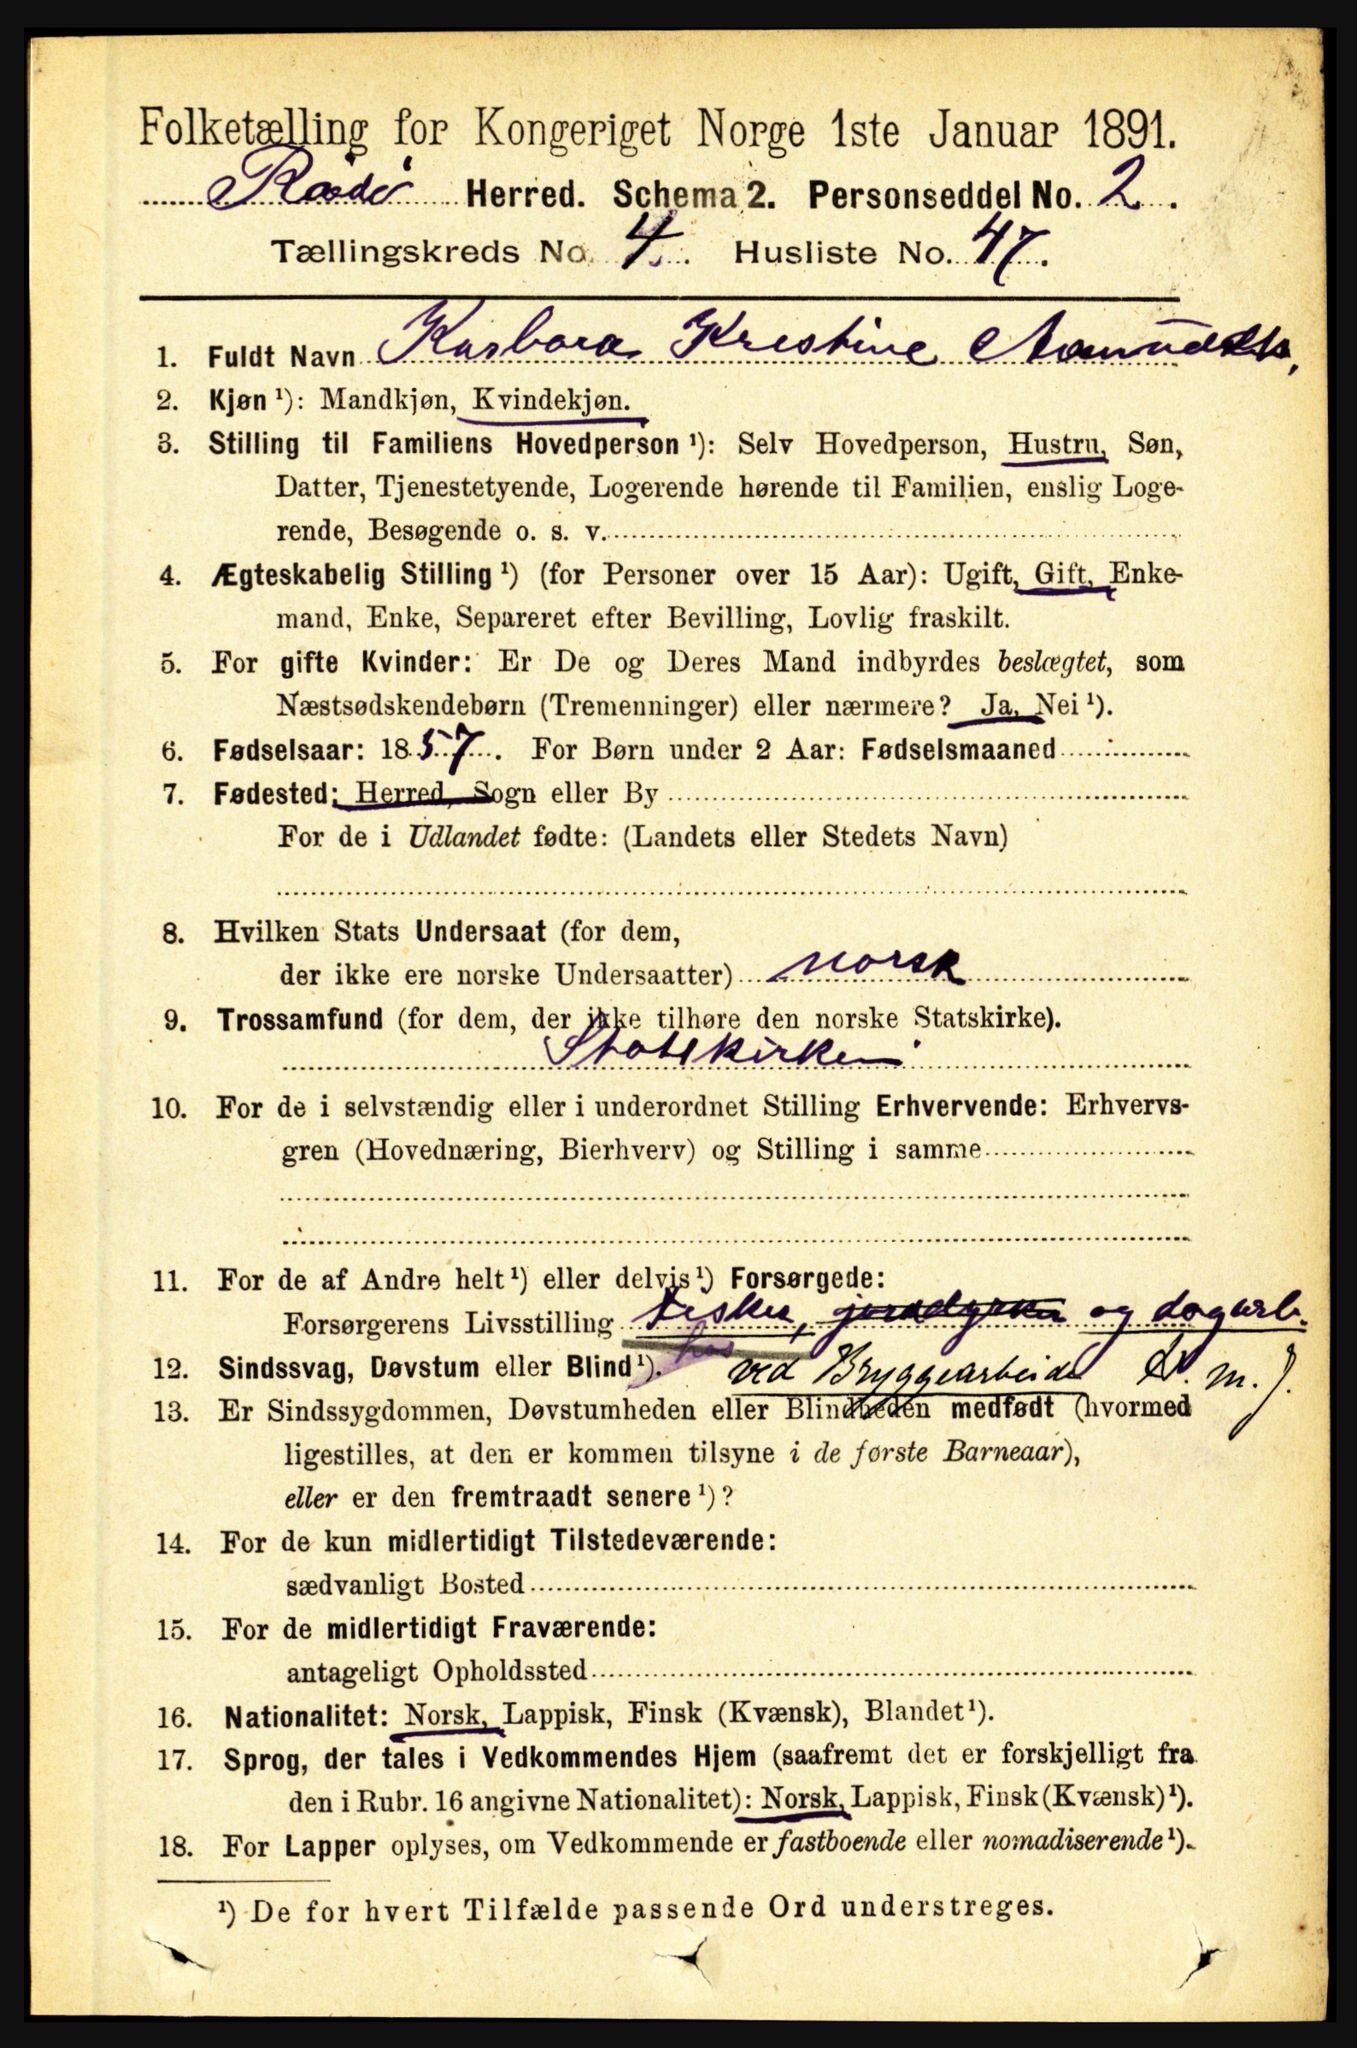 Folketælling for Kongeriget Norge 1ste Januar 1891.
Rødø Herred. Schema 2. Personseddel No. 2.
Tællingskreds No. 4. Husliste No. 47.
1. Fuldt Navn Karbora Kristine
2. Kjøn ¹): Mandkjøn, Kvindekjøn.
3. Stilling til Familiens Hovedperson ¹): Selv Hovedperson, Hustru, Søn,
Datter, Tjenestetyende, Logerende hørende til Familien, enslig Loge-
rende, Besøgende o. s. v.
4. Ægteskabelig Stilling ¹) (for Personer over 15 Aar): Ugift, Gift, Enke-
mand, Enke, Separeret efter Bevilling, Lovlig fraskilt.
5. For gifte Kvinder: Er De og Deres Mand indbyrdes beslægtet, som
Næstsødskendebørn (Tremenninger) eller nærmere? Ja, Nei ¹).
6. Fødselsaar: 1857. For Børn under 2 Aar: Fødselsmaaned
7. Fødested: Herred, Sogn eller By
For de i Udlandet fødte: (Landets eller Stedets Navn)
8. Hvilken Stats Undersaat (for dem,
der ikke ere norske Undersaatter) norsk
9. Trossamfund (for dem, der ikke tilhøre den norske Statskirke).
Statskirken
10. For de i selvstændig eller i underordnet Stilling Erhvervende: Erhvervs-
gren (Hovednæring, Bierhverv) og Stilling i samme
11. For de af Andre helt ¹) eller delvis ¹) Forsørgede:
Forsørgerens Livsstilling Fisker, jorddyrker og dagarb.
12. Sindssvag, Døvstum eller Blind ¹). ved Bryggearbeide
13. Er Sindssygdommen, Døvstumheden eller Blindheden medfødt (hvormed
ligestilles, at den er kommen tilsyne i de første Barneaar),
eller er den fremtraadt senere ¹)?
14. For de kun midlertidigt Tilstedeværende:
sædvanligt Bosted
15. For de midlertidigt Fraværende:
antageligt Opholdssted
16. Nationalitet: Norsk, Lappisk, Finsk (Kvænsk), Blandet ¹).
17. Sprog, der tales i Vedkommendes Hjem (saafremt det er forskjelligt fra
den i Rubr. 16 angivne Nationalitet): Norsk, Lappisk, Finsk (Kvænsk) ¹).
18. For Lapper oplyses, om Vedkommende er fastboende eller nomadiserende ¹).
¹) De for hvert Tilfælde passende Ord understreges.